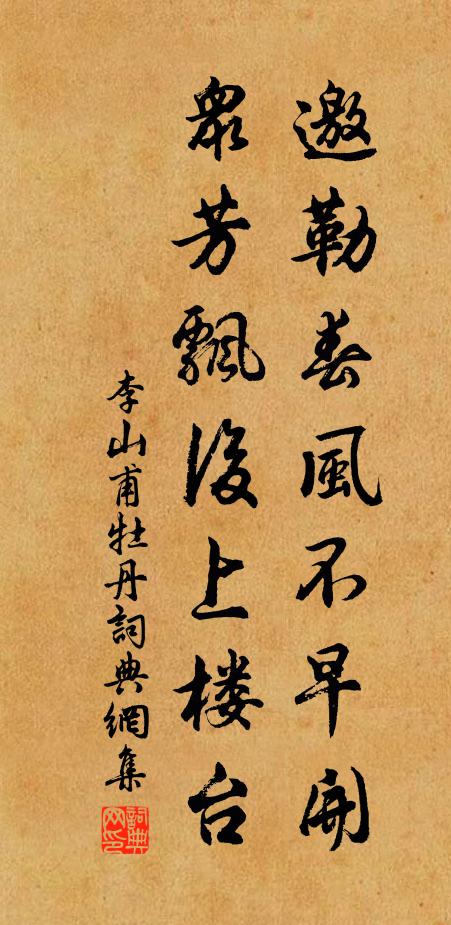 邀勒春風不早開
眾芳飄後上楼台
李山甫牡丹詞典網集
詞典網印